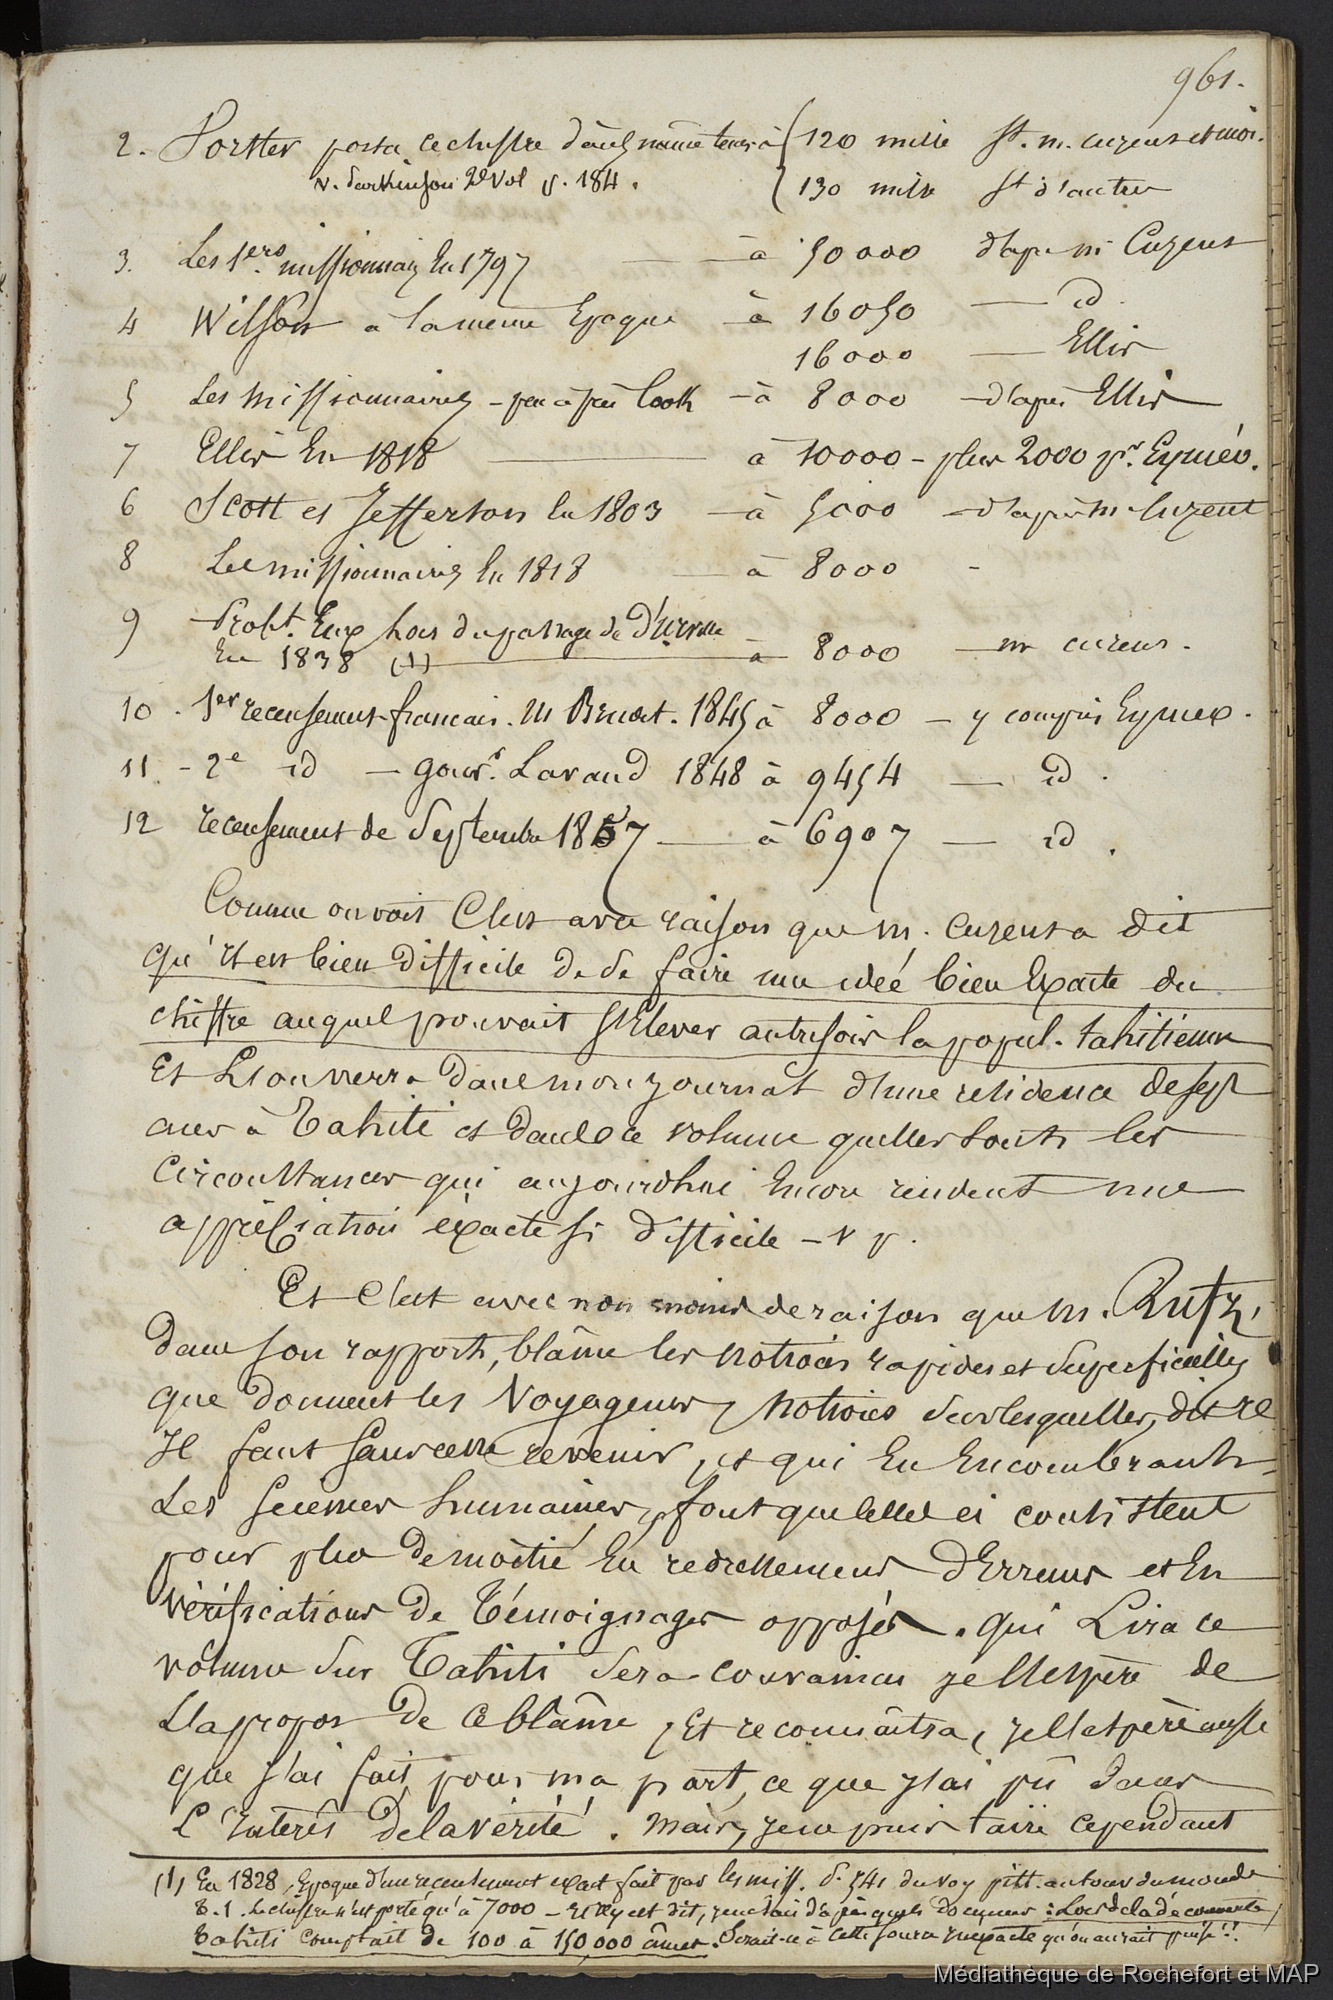 961.
2. Forster porta ce chiffre dans le même tems à { 120 mille st. m. cuzent et moi.
v. Parkinson 2e vol p. 184. { 130 mille st d'autres
3. Les 1ers missionnaires En 1797 — à 50000 d'après m Cuzent
4 Wilson à la meme Epoque — à 16050 — id.
16000 — Ellis
5 Les Missionnaires - peu après Cook - à 8000 - d'après Ellis
7 Ellis En 1818 — à 10000 - plus 2000 pr. Eyméo.
6 Scott et Jefferson En 1803 - à 5000 - d'après m. Cuzent
8 Les missionnaires En 1818 — à 8000 -
9 Probt. Eux lors du passage de D'Urville
En 1838 (1) — à 8000 — m cuzent.
10. 1er recensement francais. M Bruat. 1845 à 8000 - y compris Eymeo.
11. - 2e id - gouvr. Lavaud 1848 à 9454 — id.
12 recensement de Septembre 1857 — à 6907 — id.
Comme on voit C'est avec raison que m. cuzent a dit
qu'il est bien difficile de se faire une idée bien Exacte du
chiffre auquel pouvait s'Elever autrefois la popul. tahitienne
Et L'on verra dans mon journal d'une residence de sept
ans à Tahiti et dans ce volume quelles sont les
circonstances qui aujourdhui Encore rendent une
appréciation exacte si difficile - v p.
Et C'est avec non moins de raison que m. Rufz,
dans son rapport, blâme les notions rapides et superficielles
que donnent les Voyageurs, notions sur lesquelles, dit il
Il faut sans cesse revenir, et qui En Encombrant
Les sciences humaines, font que celles ci consistent
pour plus de moitié En redressements d'Erreurs et En
vérifications de Témoignages opposés. qui Lira ce
volume sur Tahiti sera convaincu je l'Espère de
L'apropos de ce blâme, Et reconnaitra, je l'espère aussi
que j'ai fait, pour ma part, ce que j'ai pû dans
L'Interêt de la vérité. Mais, je ne puis taire cependant
(1) En 1828, Epoque d'un recensement exact fait par les miss. p. 541 du voy pitt. autour du monde
T. 1. Le chiffre n'est porté qu'à 7000 - Et il y est dit, je ne sais d'après quels documens : Lors de la découverte,
Tahiti comptait de 100 à 150,000 âmes. Serait-ce à cette source inexacte qu'on aurait puisé !?.
Médiathèque de Rochefort et MAP